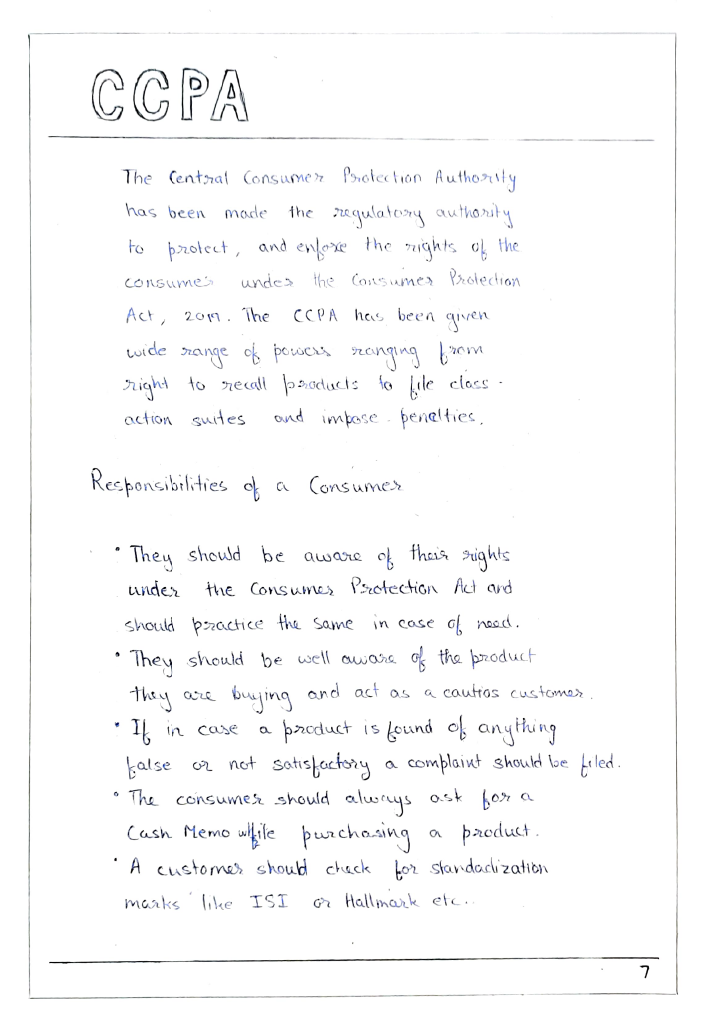 CCPA
The Central Consumer Protection Authority
has been made the regulatory authority
to protect, and enforce the rights of the
consumer under the Consumer Protection
Act, 2019. The CCPA has been given
wide range of powers ranging from
right to recall products to file class-
action suites and impose penalties.
Responsibilities of a Consumer
• They should be aware of their rights
under the Consumer Protection Act and
should practice the same in case of need.
• They should be well aware of the product
they are buying and act as a cautios customer.
• If in case a product is found of anything
false or not satisfactory a complaint should be filed.
• The consumer should always ask for a
Cash Memo while purchasing a product.
• A customer should check for standadization
marks like ISI or Hallmark etc..
7